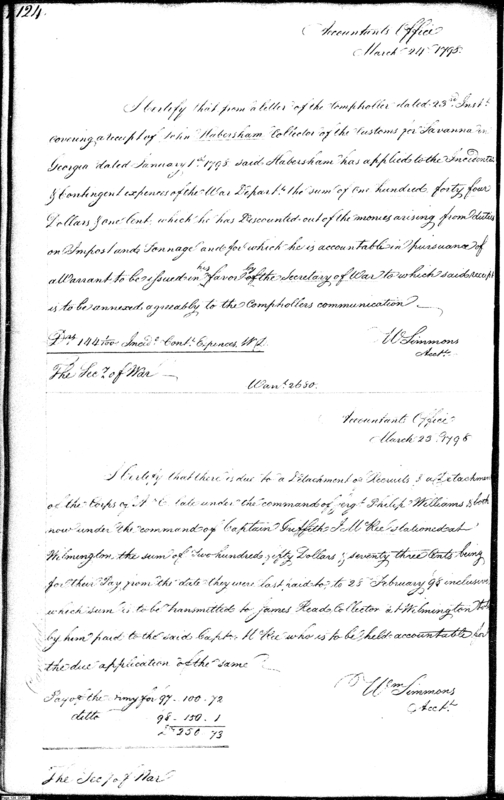 124.
Accountants Office
March 24th 1798
I certify that from a letter of the Comptroller dated 23rd Inst.
covering a receipt of John Habersham Collector of the Customs for Savanna in
Georgia dated January 1st 1798 said Habersham has applied to the Incidental
& Contingent expences of the War Departt. the sum of One hundred, forty four
Dollars & one Cent, which he has Discounted out of the monies arising from duties
on Impost and Tonnage and for which he is accountable in pursuance of
a Warrant to be issued in his favor by the Secretary of War to which said receipt
is to be annexed agreably to the Comptrollers communication
Drs. 144 Incidl. Contt. Expences W.D.
Wm Simmons
Acctt.
The Secy. of War
Warrt. 2680.
Accountants Office
March 23. 1798
I certify that there is due to a Detachment of Recruits & a Detachment
of the Corps of A & E late under the command of Sergt. Philip Williams & both
now under the command of Captain Griffith J. McRee stationed at
Wilmington the sum of Two hundred fifty Dollars & seventy three Cents being
for their Pay from the date they were last paid to, to 28 February 98 inclusive
which sum is to be transmitted to James Read Collector at Wilmington to be
by him paid to the said Capt. McRee who is to be held accountable for
the due application of the same
Pay of the Army for 97 - 100.72
ditto 98 - 150.1
250 73
Wm Simmons
Acctt.
The Secy of War